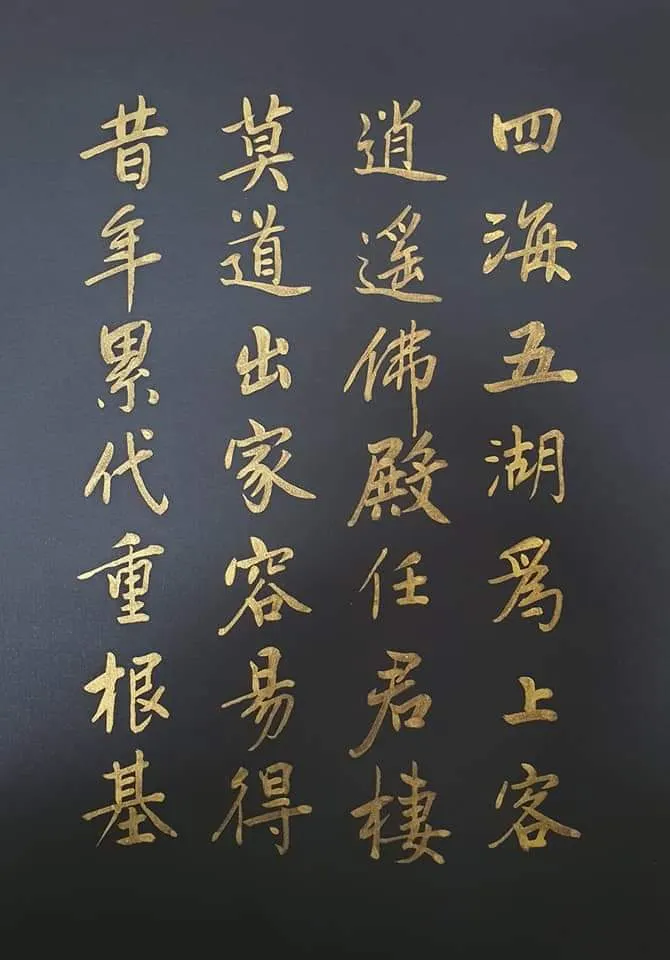 四海五湖為上客
逍遙佛殿任君棲
莫道出家容易得
昔年累代重根基